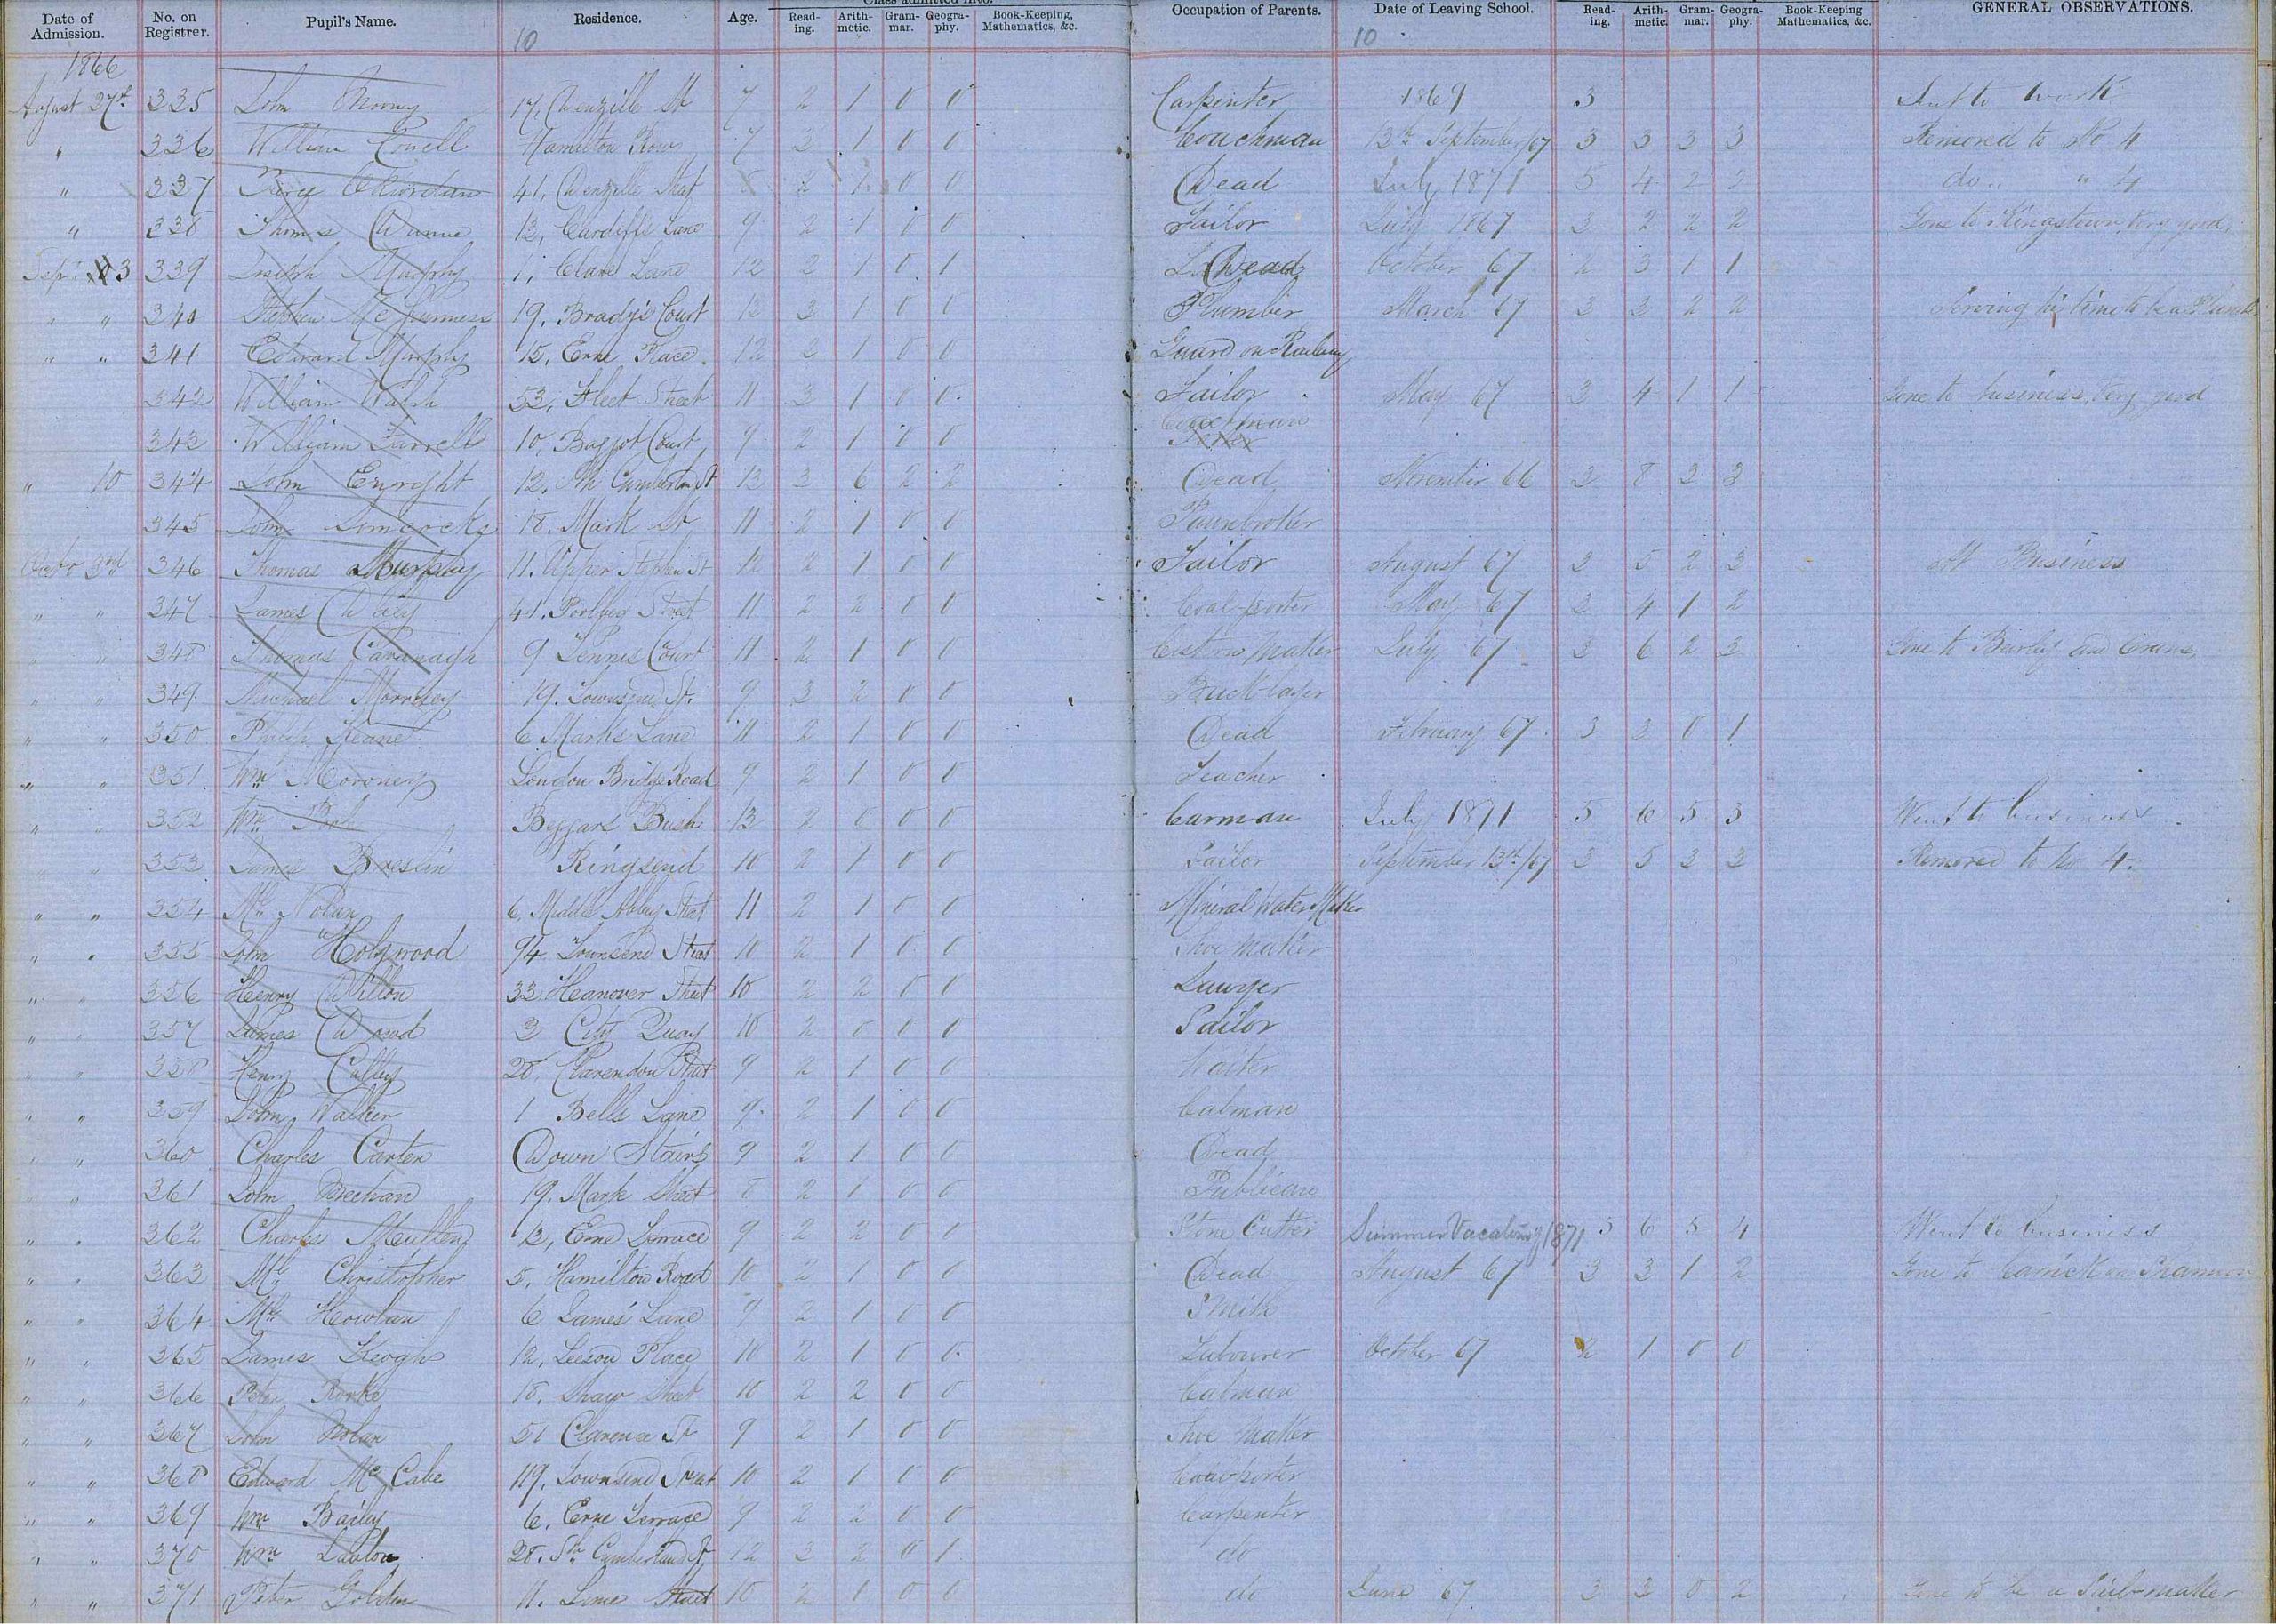 Class admitted into.
Date of Admission. No. on Registrer. Pupil's Name. Residence. Age. Read-ing. Arith-metic. Gram-mar. Geogra-phy. Book-Keeping, Mathematics, &c. Occupation of Parents. Date of Leaving School. Read-ing. Arith-metic. Gram-mar. Geogra-phy. Book-Keeping Mathematics, &c. GENERAL OBSERVATIONS.
10 10
1866
August 27th 335 John Mooney 17, Denzille St 7 2 1 0 0 Carpenter 1869 3 Sent to work
" 336 William Howell Hamilton Row 7 2 1 0 0 Coachman 13th September/67 3 3 3 3 Removed to No 4
" 337 O'Riordan 41, Denzille Street 2 1 0 0 Dead July 1871 5 4 2 2 do " 4
" 338 Thomas Dunne 13, Cardiffs Lane 9 2 1 0 0 Sailor July 1867 3 2 2 2 Gone to Kingstown, Very good,
Sept 3 339 Joseph Murphy 1, Clare Lane 12 2 1 0 1 Dead October 67 2 3 1 1
" " 340 Stephen McGuinness 19, Brady's Court 12 3 1 0 0 Plumber March 67 3 3 2 2 Serving his time to be a Plumber
" " 341 Edward Murphy 15, Erne Place 12 2 1 0 0 Guard on Railway
342 William Walsh 53, Fleet Street 11 3 1 0 0 Sailor May 67 3 4 1 1 Gone to business, Very good
343 William Farrell 10, Baggot Court 9 2 1 0 0
" 10 344 John Enright 12, Sth Cumberland St 13 3 6 2 2 Dead November 66 3 8 3 3
345 John 18, Mark St 11 2 1 0 0 Pawnbroker
Octr 3rd 346 Thomas Murphy 11, Upper Stephen St 12 2 1 0 0 Sailor August 67 3 5 2 3 At Business
" " 347 James Daly 41, Poolbeg Street 11 2 2 0 0 Coal-porter May 67 3 4 1 2
" " 348 Thomas Cavanagh 9 Tennis Court 11 2 1 0 0 Maker July 67 3 6 2 3 Gone to and
" " 349 Michael Morrissey 19, Townsend St. 9 3 2 0 0 Bricklayer
" " 350 Keane 6 Marks Lane 11 2 1 0 0 Dead February 67 3 3 0 1
" " 351 Wm Moroney London Bridge Road 9 2 1 0 0 Teacher
" " 352 Wm Beggars Bush 13 2 0 0 0 Carman July 1871 5 6 5 3 Went to business
" " 353 James Breslin Ringsend 10 2 1 0 0 Sailor September 13th/67 3 5 3 3 Removed to No 4.
" " 354 Ml Nolan 6, Middle Abbey Street 11 2 1 0 0 Mineral Water Maker
" " 355 John Holywood 94 Townsend Street 10 2 1 0 0 Shoe Maker
" " 356 Henry Dillon 33 Heanover Street 10 2 2 0 0 Sawyer
" " 357 James Dowd 3 City Quay 10 2 0 0 0 Sailor
" " 358 Henry Culley 28, Clarendon Street 9 2 1 0 0 Waiter
" " 359 John Walker 1 Bells Lane 9 2 1 0 0 Cabman
" " 360 Charles Carten Down Stairs 9 2 1 0 0 Dead
" " 361 John Meehan 19, Mark Street 8 2 1 0 0 Publican
" " 362 Charles Mullen 13, Erne Terrace 9 2 2 0 0 Stone Cutter Summer Vacation 1871 5 6 5 4 Went to business
" " 363 Ml Christopher 5, Hamilton Road 10 2 1 0 0 Dead August 67 3 3 1 2 Gone to Carrick on Shannon
" " 364 Ml Howlan 6 James' Lane 9 2 1 0 0 Smith
" " 365 James Keogh 12, Leeson Place 10 2 1 0 0 Labourer October 67 2 1 0 0
" " 366 Peter Rorke 18, Shaw Street 10 2 2 0 0 Cabman
" " 367 John Nolan 51 Clarence St 9 2 1 0 0 Shoe Maker
" " 368 Edward McCabe 119, Townsend Street 10 2 1 0 0 Coalporter
" " 369 Wm Bailey 6, Erne Terrace 9 2 2 0 0 Carpenter
" " 370 Wm Lawlor 28, Sth Cumberland St 12 3 2 0 1 do
" " 371 Peter Golden 11, Lime Street 10 2 1 0 0 do June 67 3 3 0 2 Gone to be a Sail-maker